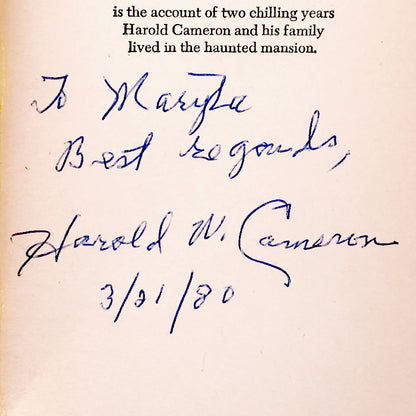 is the account of two chilling years
Harold Cameron and his family
lived in the haunted mansion.
To Maryta
Best regards,
Harold W. Cameron
3/21/80